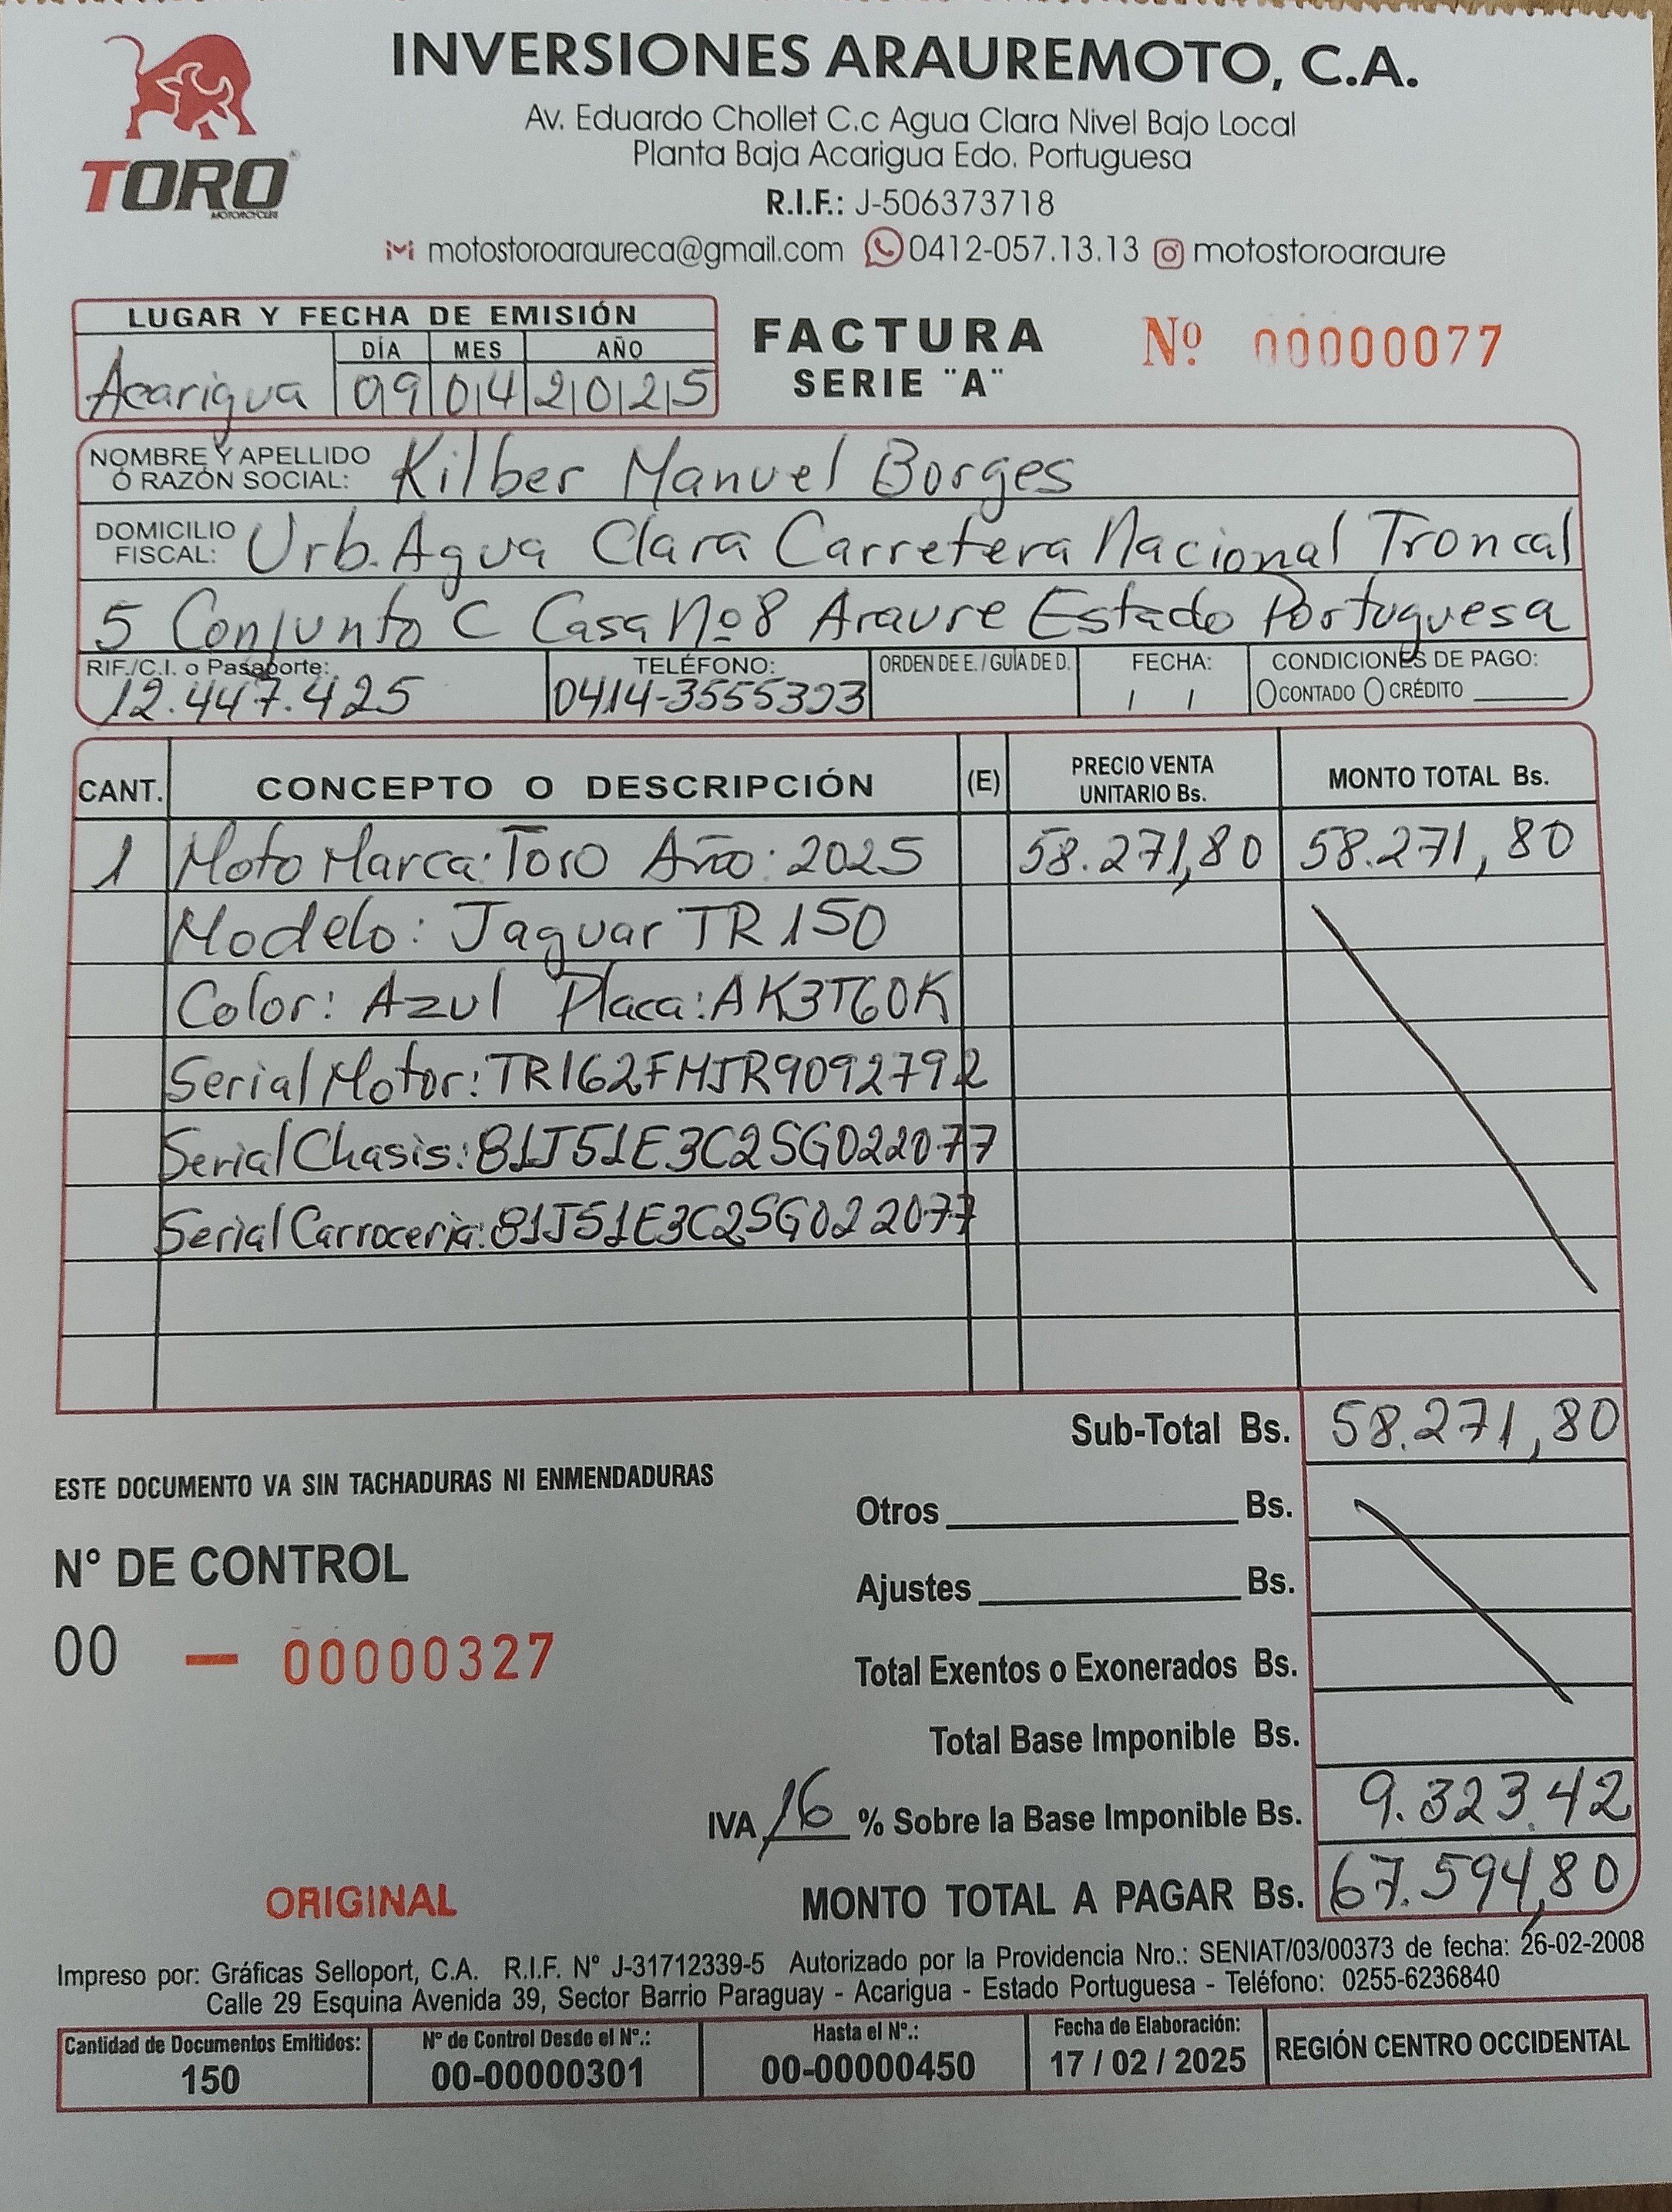 INVERSIONES ARAUREMOTO, C.A.
TORO
MOTORCYCLES
Av. Eduardo Chollet C.c Agua Clara Nivel Bajo Local
Planta Baja Acarigua Edo. Portuguesa
R.I.F.: J-506373718
motostoroaraureca@gmail.com 0412-057.13.13 motostoroaraure
LUGAR Y FECHA DE EMISIÓN
DÍA MES AÑO
Acarigua 09 04 2025
FACTURA
SERIE "A"
Nº 00000077
NOMBRE Y APELLIDO
O RAZÓN SOCIAL: Kilber Manuel Borges
DOMICILIO
FISCAL: Urb. Agua Clara Carretera Nacional Troncal
5 Conjunto C Casa Nº8 Araure Estado Portuguesa
RIF./C.I. o Pasaporte: TELÉFONO: ORDEN DE E. / GUÍA DE D. FECHA: CONDICIONES DE PAGO:
12.447.425 0414-3555323 / / CONTADO CRÉDITO
CANT. CONCEPTO O DESCRIPCIÓN (E) PRECIO VENTA UNITARIO Bs. MONTO TOTAL Bs.
1 Moto Marca: Toro Año: 2025 58.271,80 58.271,80
Modelo: Jaguar TR 150
Color: Azul Placa: AK3T60K
Serial Motor: TR162FMJR9092792
Serial Chasis: 81J51E3C2SG022077
Serial Carroceria: 81J51E3C2SG022077
Sub-Total Bs. 58.271,80
ESTE DOCUMENTO VA SIN TACHADURAS NI ENMENDADURAS
Otros Bs.
Nº DE CONTROL
Ajustes Bs.
00 — 00000327
Total Exentos o Exonerados Bs.
Total Base Imponible Bs.
IVA 16 % Sobre la Base Imponible Bs. 9.323.42
ORIGINAL
MONTO TOTAL A PAGAR Bs. 67.594,80
Impreso por: Gráficas Selloport, C.A. R.I.F. Nº J-31712339-5 Autorizado por la Providencia Nro.: SENIAT/03/00373 de fecha: 26-02-2008
Calle 29 Esquina Avenida 39, Sector Barrio Paraguay - Acarigua - Estado Portuguesa - Teléfono: 0255-6236840
Cantidad de Documentos Emitidos: Nº de Control Desde el Nº.: Hasta el Nº.: Fecha de Elaboración: REGIÓN CENTRO OCCIDENTAL
150 00-00000301 00-00000450 17 / 02 / 2025